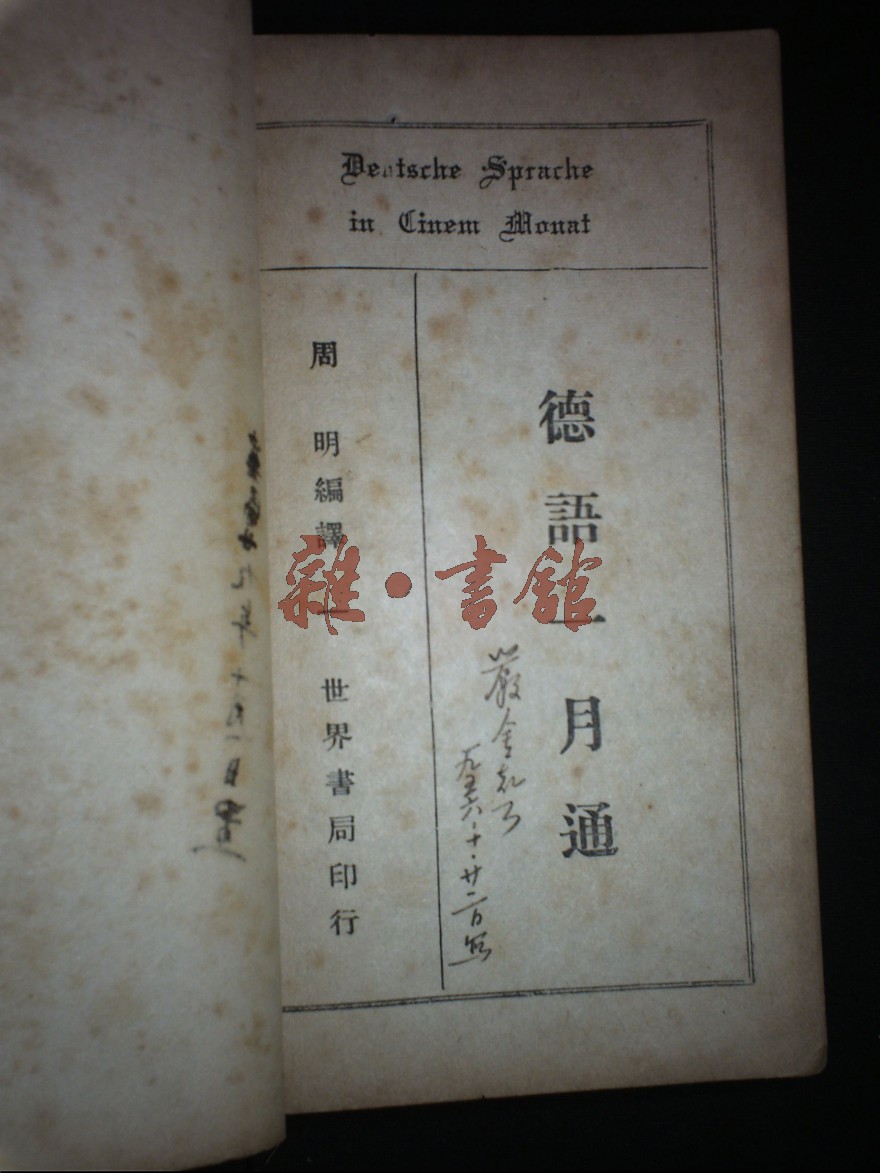 Deutsche Sprache
in Einem Monat
德語一月通
周明編譯
世界書局印行
雜·書館
嚴金
一九五六·十·廿二日